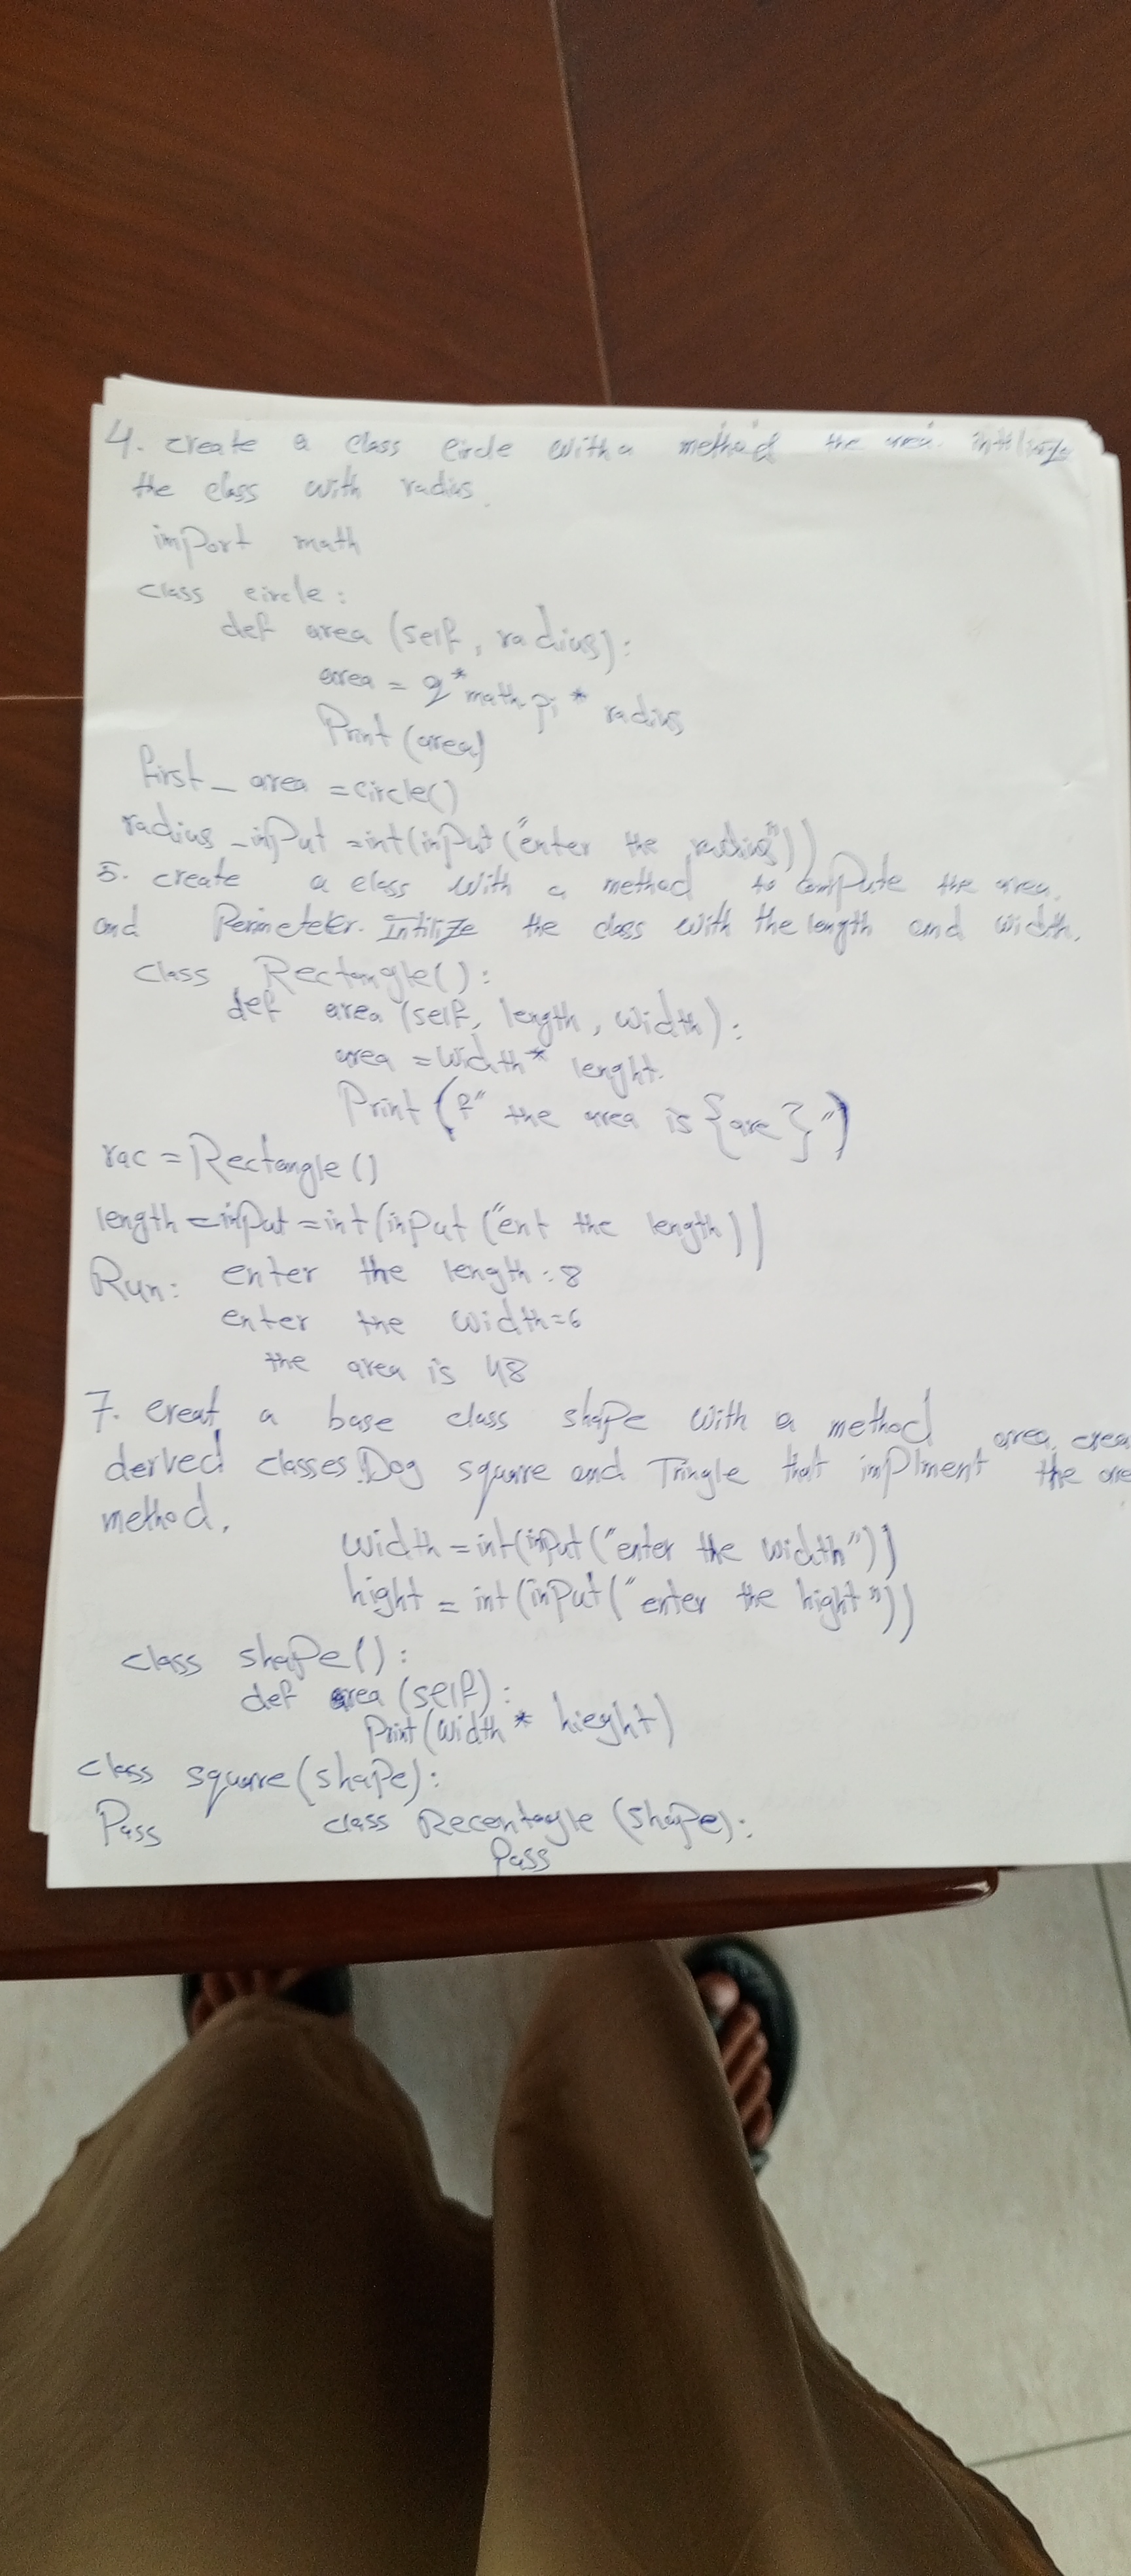 4. create a class circle with a method the area. intilize
the class with radius.
import math
class circle:
def area (self, radius):
area = 2*math.pi * radius
Print (area)
first_area = circle()
radius_input = int(input("enter the radius"))
5. create a class with a method to compute the area.
and Perimeteter. Intilize the class with the length and width.
class Rectangle():
def area (self, length, width):
area = width * lenght.
Print (f" the area is {are}")
rac = Rectangle()
length = input = int(input ("ent the length))
Run: enter the length: 8
enter the width=6
the area is 48
7. creat a base class shape with a method area, crea
derved classes. Dog square and Tringle that implment the are
method.
width = int(input("enter the width"))
hight = int(input("enter the hight"))
class shape():
def area (self):
Print (width * hieght)
class square (shape):
Pass class Recentagle (shape):
Pass